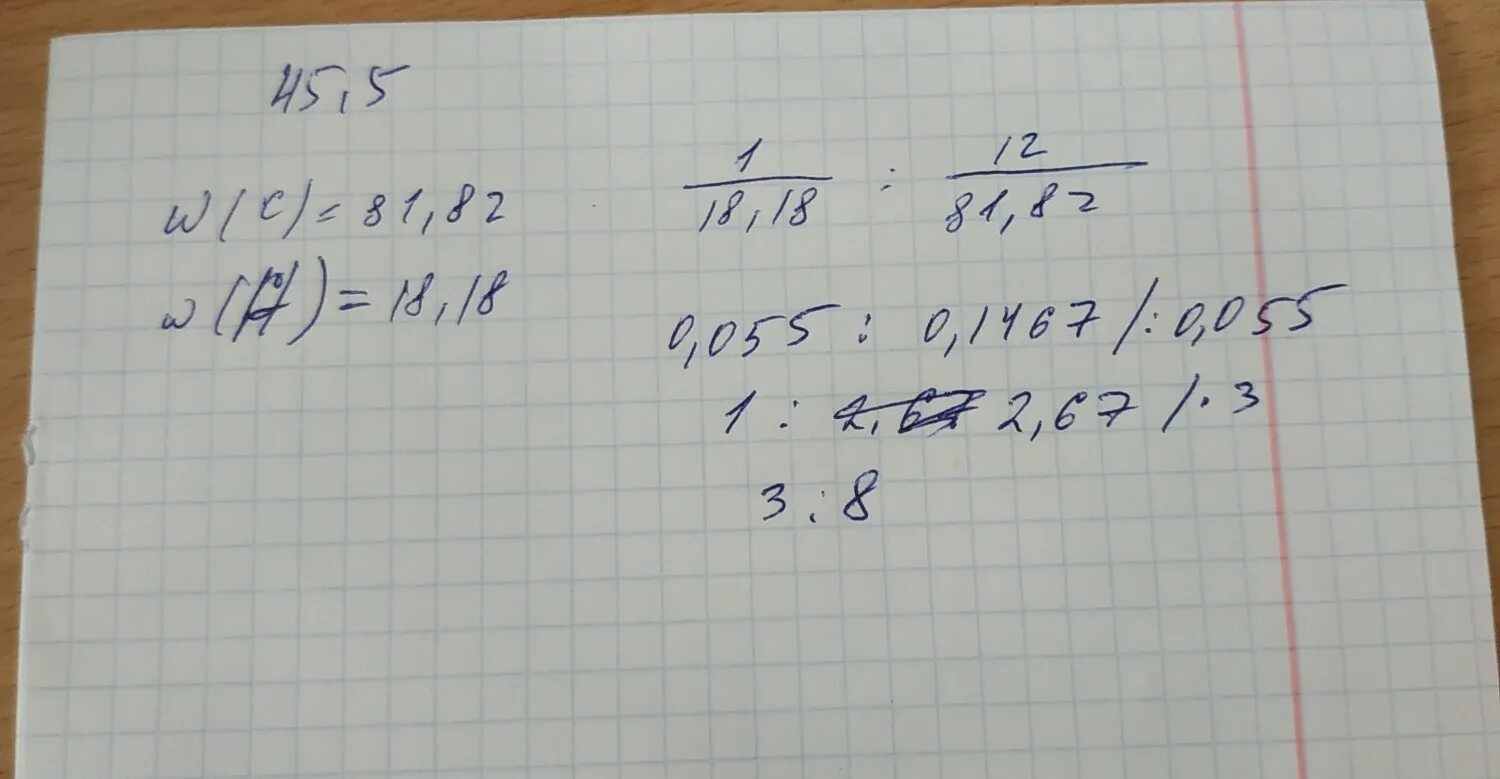 45,5
w(C) = 81,82
w(H) = 18,18
1/18,18 : 12/81,82
0,055 : 0,1467 /: 0,055
1 : 2,67 2,67 /· 3
3 : 8